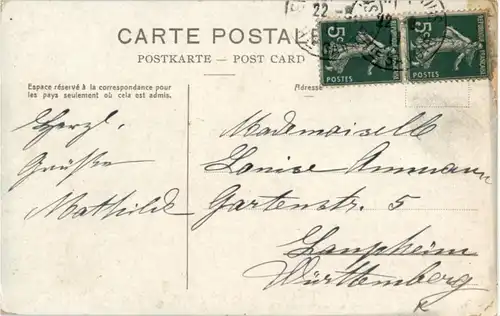 22
CARTE POSTALE
POSTKARTE — POST CARD
5c
POSTES
5c
POSTES
Espace réservé à la correspondance pour
les pays seulement où cela est admis.
Adresse
Herzl.
Grüsse
Mathilde
Mademoiselle
Louise Ammann
Gartenstr. 5
Laupheim
Württemberg